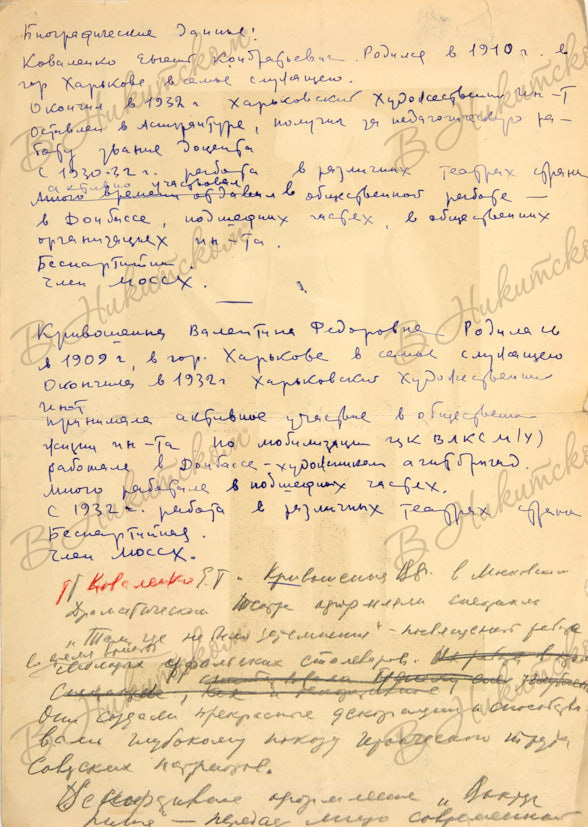 Биографические данные!
Коваленко Евгений Кондратьевич. Родился в 1910 г. в
гор Харькове, в семье служащего.
Окончил в 1932 г Харьковский Художественный ин-т
Оставлен в аспирантуре, получил за педагогическую ра-
боту звание доцента
С 1930-32 г. работа в различных театрах страны
активно участвовал
Много времени отдавал в общественной работе —
в Донбассе, подшефных частях, в общественных
организациях ин-та.
Беспартийный.
член МОССХ.
Кривошеина Валентина Федоровна Родилась
в 1909 г, в гор. Харькове в семье служащего
Окончила в 1932 г Харьковский Художественный
инст
принимала активное участие в общественной
жизни ин-та по мобилизации цк ВЛКСМ(У)
работала в Донбассе - художником агитбригад.
Много работала в подшефных частях.
С 1932 г. работа в различных театрах страны
Беспартийная.
член МОССХ.
Коваленко и Кривошеина В.Ф. в Московском
Драматическом театре оформляли спектакль
"Там, где не было затемнения" - посвященный работе
во время войны
молодых уральских сталеваров.
Они создали прекрасные декорации и способство-
вали глубокому показу героического труда
Советских патриотов.
оформление
передает лицо современной
В Никитском
В Никитском
В Никитском
В Никитском
В Никитском
В Никитском
В Никитском
В Никитском